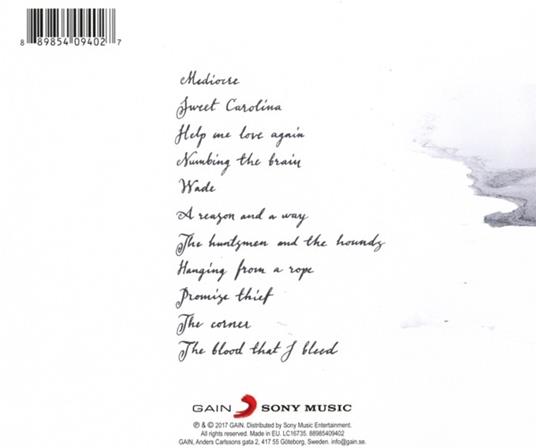 8 89854 09402 7
Mediocre
Sweet Carolina
Help me love again
Numbing the brain
Wade
A reason and a way
The huntsmen and the hounds
Hanging from a rope
Promise thief
The corner
The blood that I bleed
GAIN SONY MUSIC
℗ & © 2017 GAIN. Distributed by Sony Music Entertainment.
All rights reserved. Made in EU. LC16735. 88985409402
GAIN, Anders Carlssons gata 2, 417 55 Göteborg, Sweden. info@gain.se.